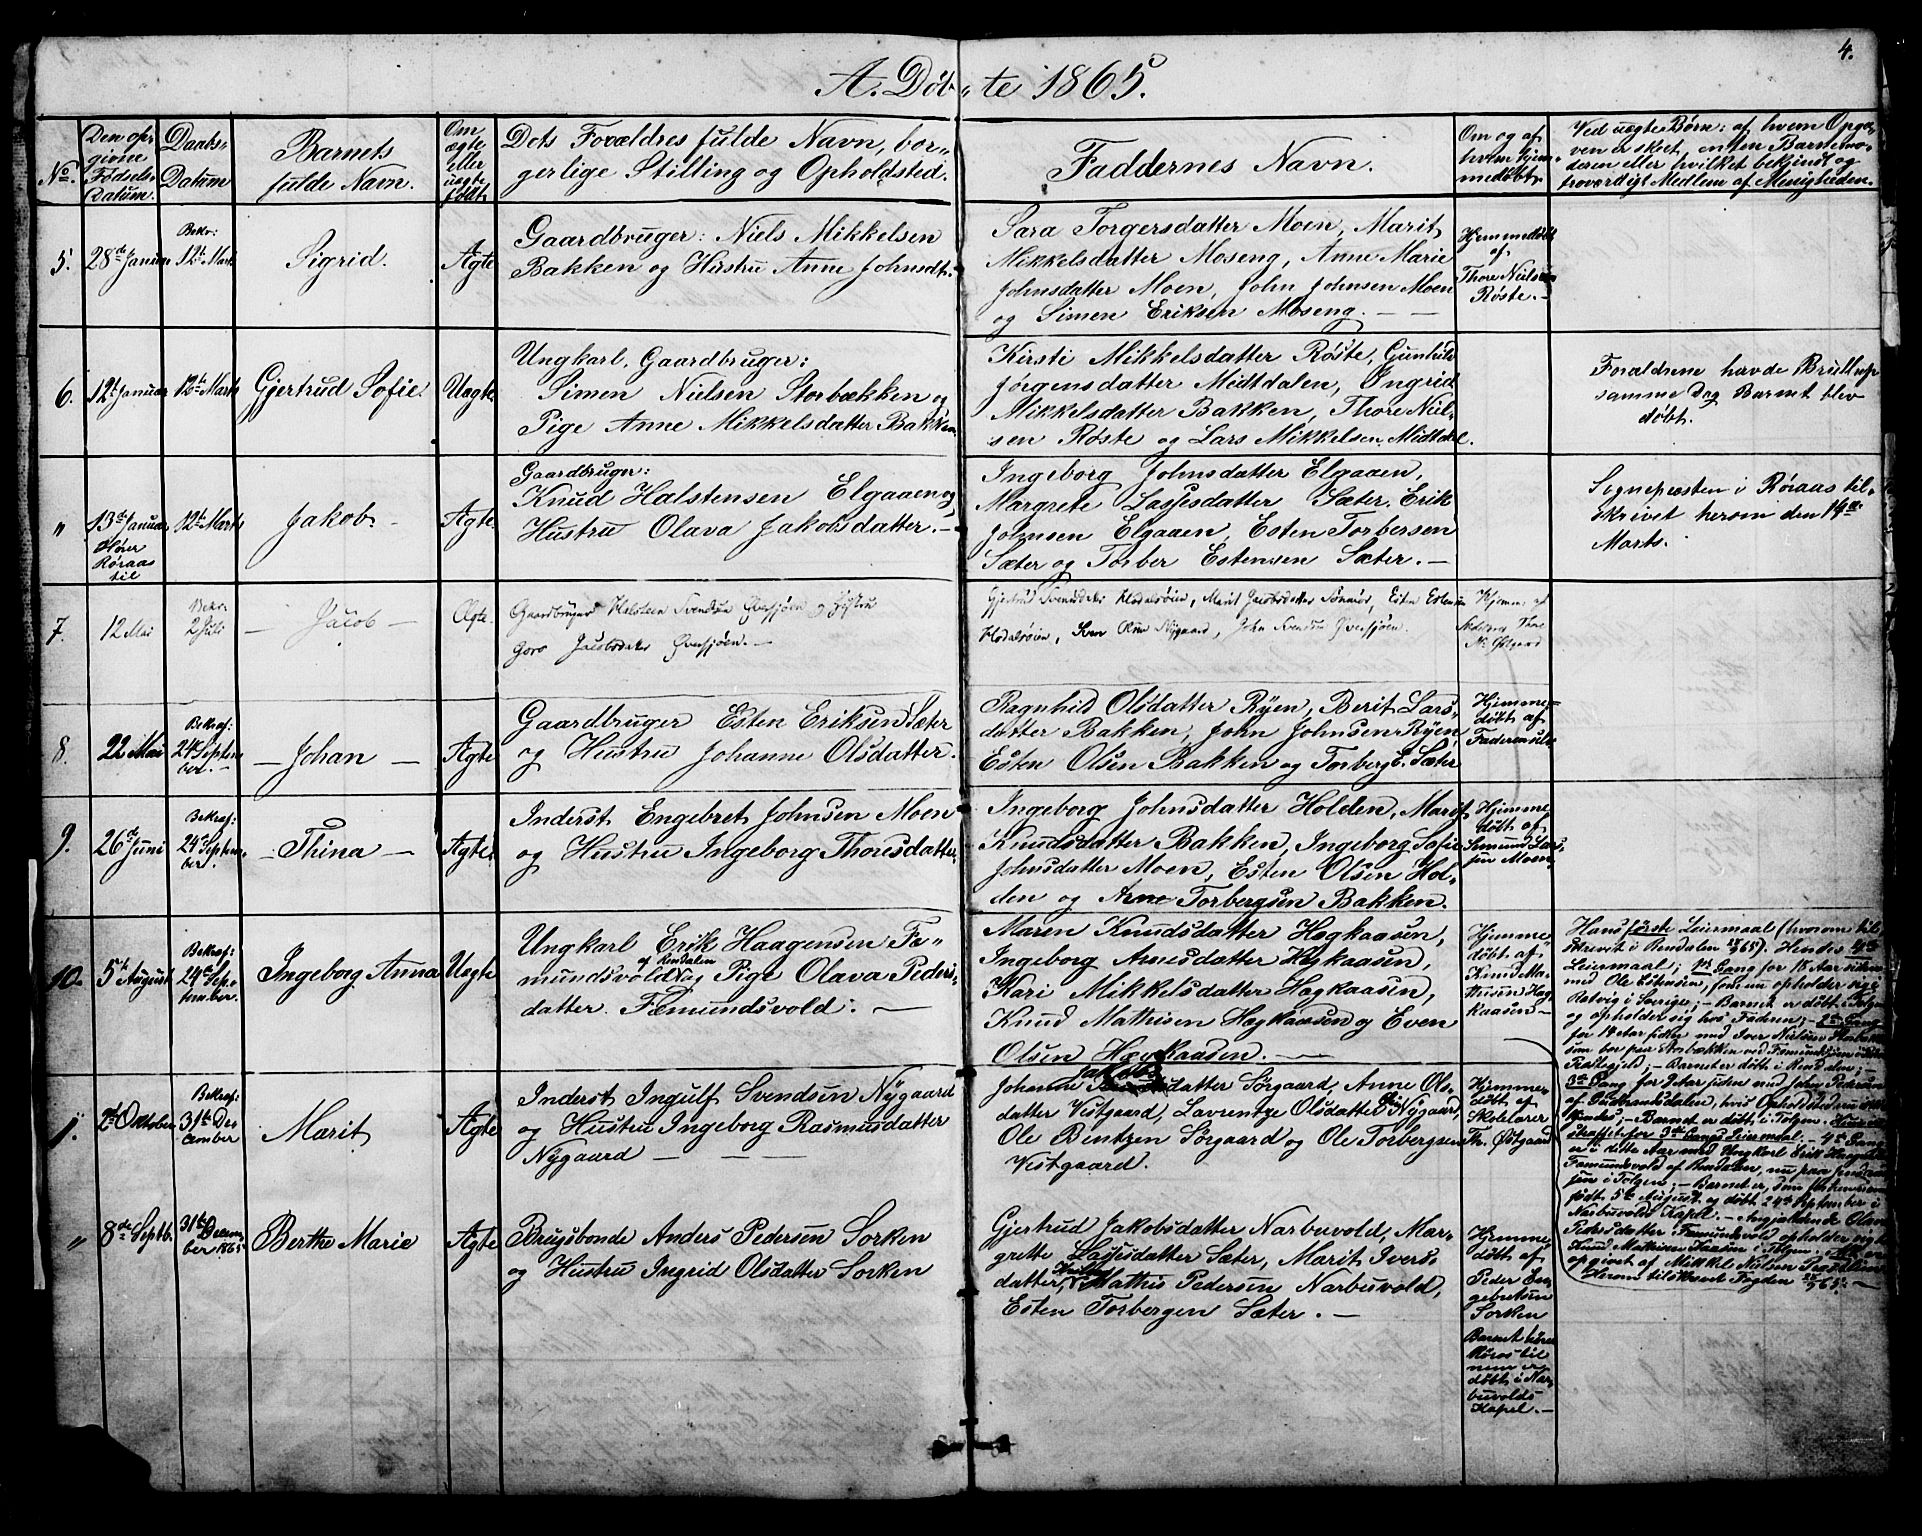 4.
A. Døbte 1865.
No.
Den opgivne Fødsels-Datum.
Daabs-Datum
Barnets fulde Navn.
Om ægte eller uægte født.
Dets Forældres fulde Navn, borgerlige Stilling og Opholdsted.
Faddernes Navn.
Om og af hvem hjemmedøbt.
Ved uægte Børn: af hvem Opgaven er skeet, enten Barnemoderen eller hvilket bekjendt og troværdigt Medlem af Menigheden.
5.
28de Januar
Bekr:
12te Marts
Sigrid.
Ægte
Gaardbruger: Niels Mikkelsen
Bakken og Hustru Anne Johnsdt.
Sara Torgersdatter Moen, Marit
Mikkelsdatter Moseng, Anne Marie
Johnsdatter Moen, John Johnsen Moen
og Simen Eriksen Moseng. — —
Hjemmedøbt
af
Thore Nielsen
Røste. —
6.
12te Januar
12te Marts
Gjertrud Sofie.
Uægte
Ungkarl, Gaardbruger:
Simen Nielsen Storbækken og
Pige Anne Mikkelsdatter Bakken.
Kirsti Mikkelsdatter Røste, Gunhild
Jørgensdatter Midtdalen, Ingrid
Mikkelsdatter Bakken, Thore Niel-
sen Røste og Lars Mikkelsen Midtdal.
Forældrene havde Bryllup
samme Dag Barnet blev
døbt.
"
13de Januar
Hører
Røraas
til
12te Marts
Jakob. —
Ægte
Gaardbruger:
Knud Halstensen Elgaaen og
Hustru Olava Jakobsdatter. —
Ingeborg Johnsdatter Elgaaen,
Margrete Lassesdatter Sæter, Erik
Johnsen Elgaaen, Esten Torbersen
Sæter og Torber Estensen Sæter. —
Sognepræsten i Røraas til-
skrivet herom den 14de
Marts.
7.
12 Mai
Bekr:
2 Juli
— Jacob —
Ægte.
Gaardbruger Halsteen Svendsen og Hustru
Goro Jacobsdatter —
Gjertrud Svendsdatter Hodalsøien, Marit Jacobsdatter Esten Estensen
Hodalsøien, Sven Olsen Nygaard, John Svendsen
Hjemme af
Thore
N. Østgaard
8.
22 Mai
Bekræf:
24de Septem
ber. —
— Johan —
Ægte
Gaardbruger Esten Eriksen Sæter
og Hustru Johanne Olsdatter.
Ragnhild Olsdatter Ryen, Berit Lars-
datter Bakken, John Johnsen Ryen,
Esten Olsen Bakken og Torberg E. Sæter
Hjemme-
døbt af
Faderen selv
9.
26de Juni
Bekræf:
24de Septem-
ber.
— Thina —
Ægte
Inderst Engebret Johnsen Moen
og Hustru Ingeborg Thoresdatter
Ingeborg Johnsdatter Holden, Marit
Knudsdatter Bakken, Ingeborg Sofie
Johnsdatter Moen, Esten Olsen Hol-
den og Arne Torbergsen Bakken.
Hjemme
døbt af
Simund Lars-
sen Moen
10.
5te August
Bekræf:
24de Sep-
tember.
Ingeborg Anna
Uægte
Ungkarl Erik Haagensen Fæ-
mundsvold af Rendalen og Pige Olava Peders-
datter Fæmundsvold: —
Maren Knudsdatter Høgkaasen,
Ingeborg Arnesdatter Høgkaasen,
Kari Mikkelsdatter Høgkaasen,
Knud Mathisen Høgkaasen og Even
Olsen Høgkaasen. —
Hjemme-
døbt af
Knud Ma-
thisen Høg-
kaasen —
Hans første Leiermaal (hvorom til-
skrivet i Rendalen 65). Hendes 4de
Leiermaal; 1ste Gang for 18 Aar siden
med Ole Estensen, som nu opholder sig i
Retvig i Sverige; — Barnet er døbt i Tolgen
og opholder sig hos Faderen; — 2den Gang
for 14 Aar siden med Iver Nielsen
som bor paa Storbækken ved Fæmundsjøen
— Barnet er døbt i Rendalen; —
3de Gang for 7 Aar siden med John Pedersen
af Gudbrandsdalen, hvis Opholdssted
kjendes; — Barnet er døbt i Tolgen.
straffet for 3de Gangs Leiermaal — 4de Gang
er i dette Aar med Ungkarl Erik Haagensen
Fæmundsvold af Rendalen, nu paa
i Tolgen; — Barnet er, som forhen
født 5te August og døbt 24de September i
Narbuvolds Kapel. — Angjældende Olava
Pedersdatter Fæmundsvold opholder sig hos
Knud Mathisen Kaasen i Tolgen.
opgivet af Mikkel Nielsen
Herom tilskrevet Fogden 65. —
11.
2de Oktober
Bekræf:
31te De-
cember
Marit
Ægte
Inderst Ingulf Svendsen Nygaard
og Hustru Ingeborg Rasmusdatter
Nygaard — — —
Johanne Jakobsdatter Sørgaard, Anne Ols-
datter Vestgaard, Lavrentze Olsdatter Nygaard,
Ole Bentzen Sørgaard og Ole Torbergsen
Vestgaard.
Hjemme-
døbt af
Skolelærer
Th. Østgaard
"
8de Septb.
31te Decem
ber 1865
Berthe Marie
Ægte
Brugsbonde Anders Pedersen Sorken
og Hustru Ingrid Olsdatter Sorken
Gjertrud Jakobsdatter Narbuvold, Mar-
grette Lassesdatter Sæter, Marit Ivers-
datter, Mathis Pedersen Narbuvold,
Esten Torbergen Sæter. —
Hjemme
døbt af
Peder En-
gebretsen
Sorken
Barnet hører
Røros til
men er
døbt i Nar-
buvolds
Kapel. —